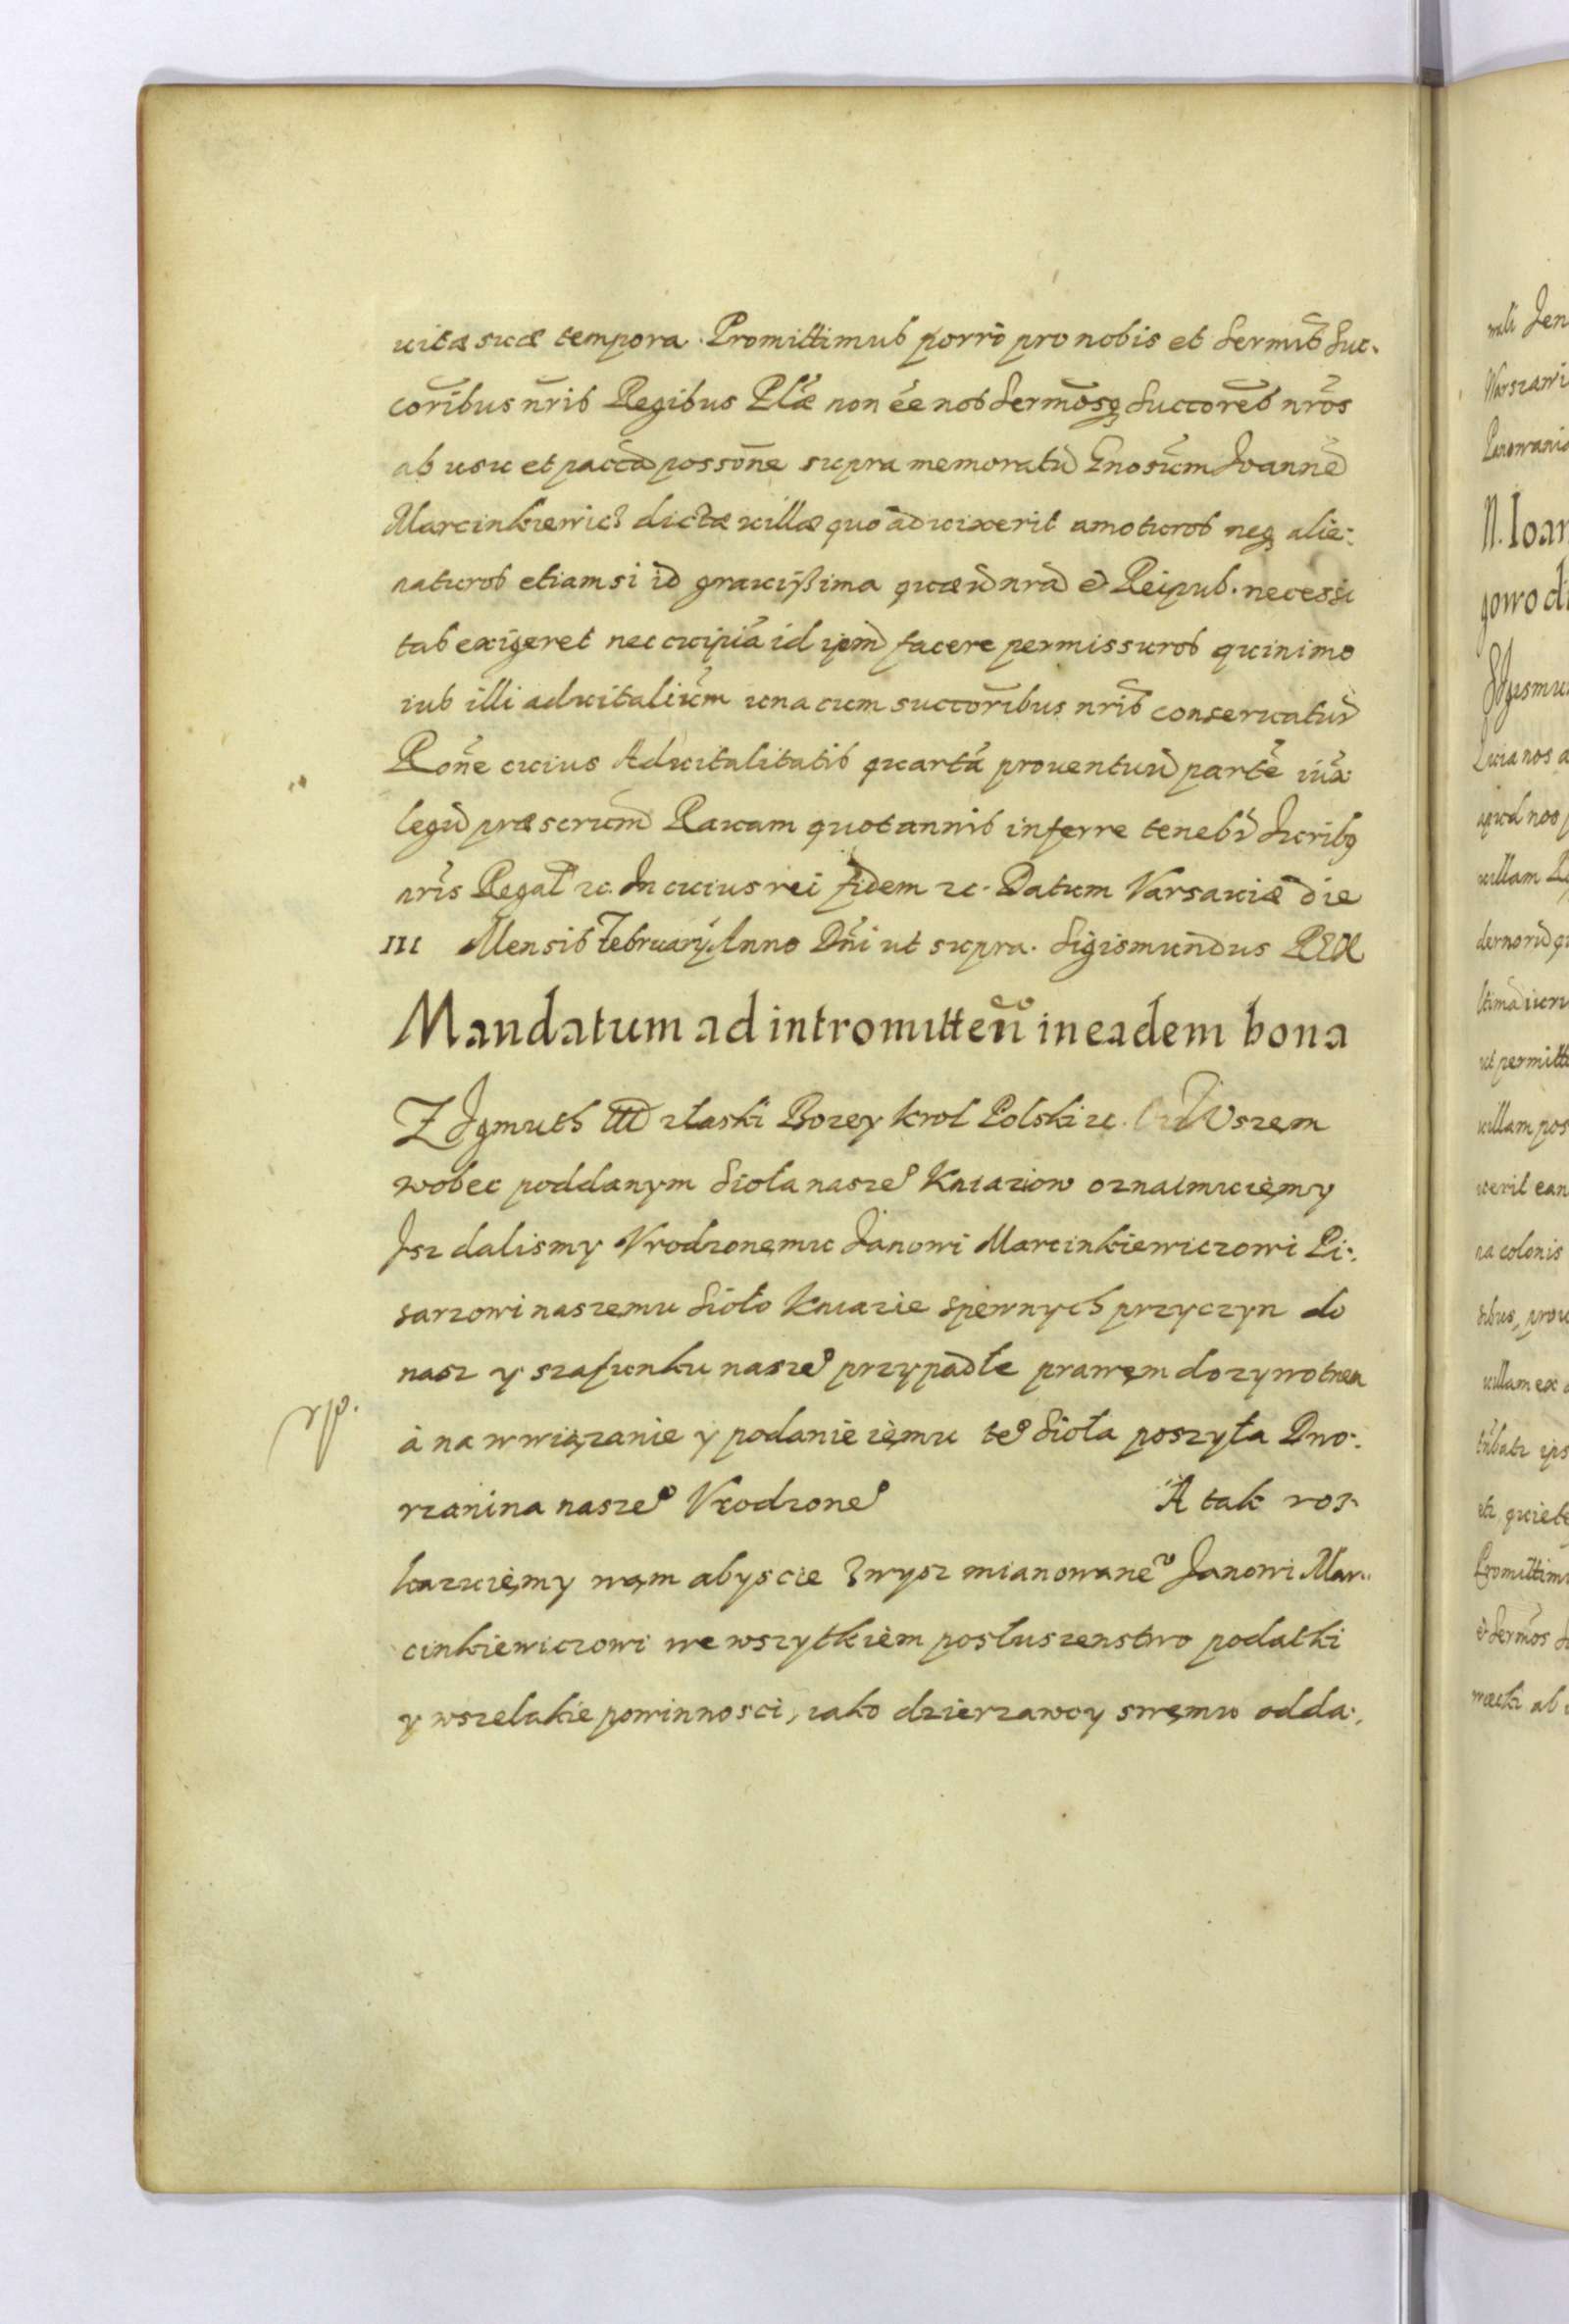 uitæ suæ tempora. Promittimus porro pro nobis et Sermis Suc-
coribus nris Regibus Plæ non ee nos Sermosq Succores nros
ab usu et pacca possone supra memoratu Gnosum Joanne
Marcinkiewicz dictæ uillæ quoad uixerit amoturos neq alie-
naturos etiamsi id grauissima quæuis nra et Reipub. necessi
tas exigeret nec cuipia id ipm facere permissuros quinimo
ius illi aduitalium una cum succoribus nris conseruatur
Rone cuius Aduitalitatis quarta prouentuu parte iux
legu præscrium Rauam quotannis inferre tenebr Juribq
nris Regal zc. In cuius rei fidem zc. Datum Varsauiæ die
III Mensis Februarij Anno Dni ut supra. Sigismundus REX
Mandatum ad intromitten in eadem bona
ZJgmuth III złaski Bozey krol Polski zc. Wszem
wobec poddanym Sioła nasze° Kniaziow oznaimuięmy
Jsz dalismy Vrodzonęmu Janowi Marcinkiewiczowi Pi-
sarzowi naszemu Sioło Kniazie spewnych przyczyn do
nasz y szafunku nasze° przypadłe prawęm dozywotnem
rp.
à na wwiązanie y podanie ięmu te° Sioła poszyła Dwo-
rzanina nasze° Vrodzone° A tak ros-
kazuięmy wąm abyscie zwysz mianowane° Janowi Mar-
cinkiewiczowi we wszytkięm posłuszenstwo podatki
y wszelakie powinnosci, iako dzierzawcy swęmu odda-